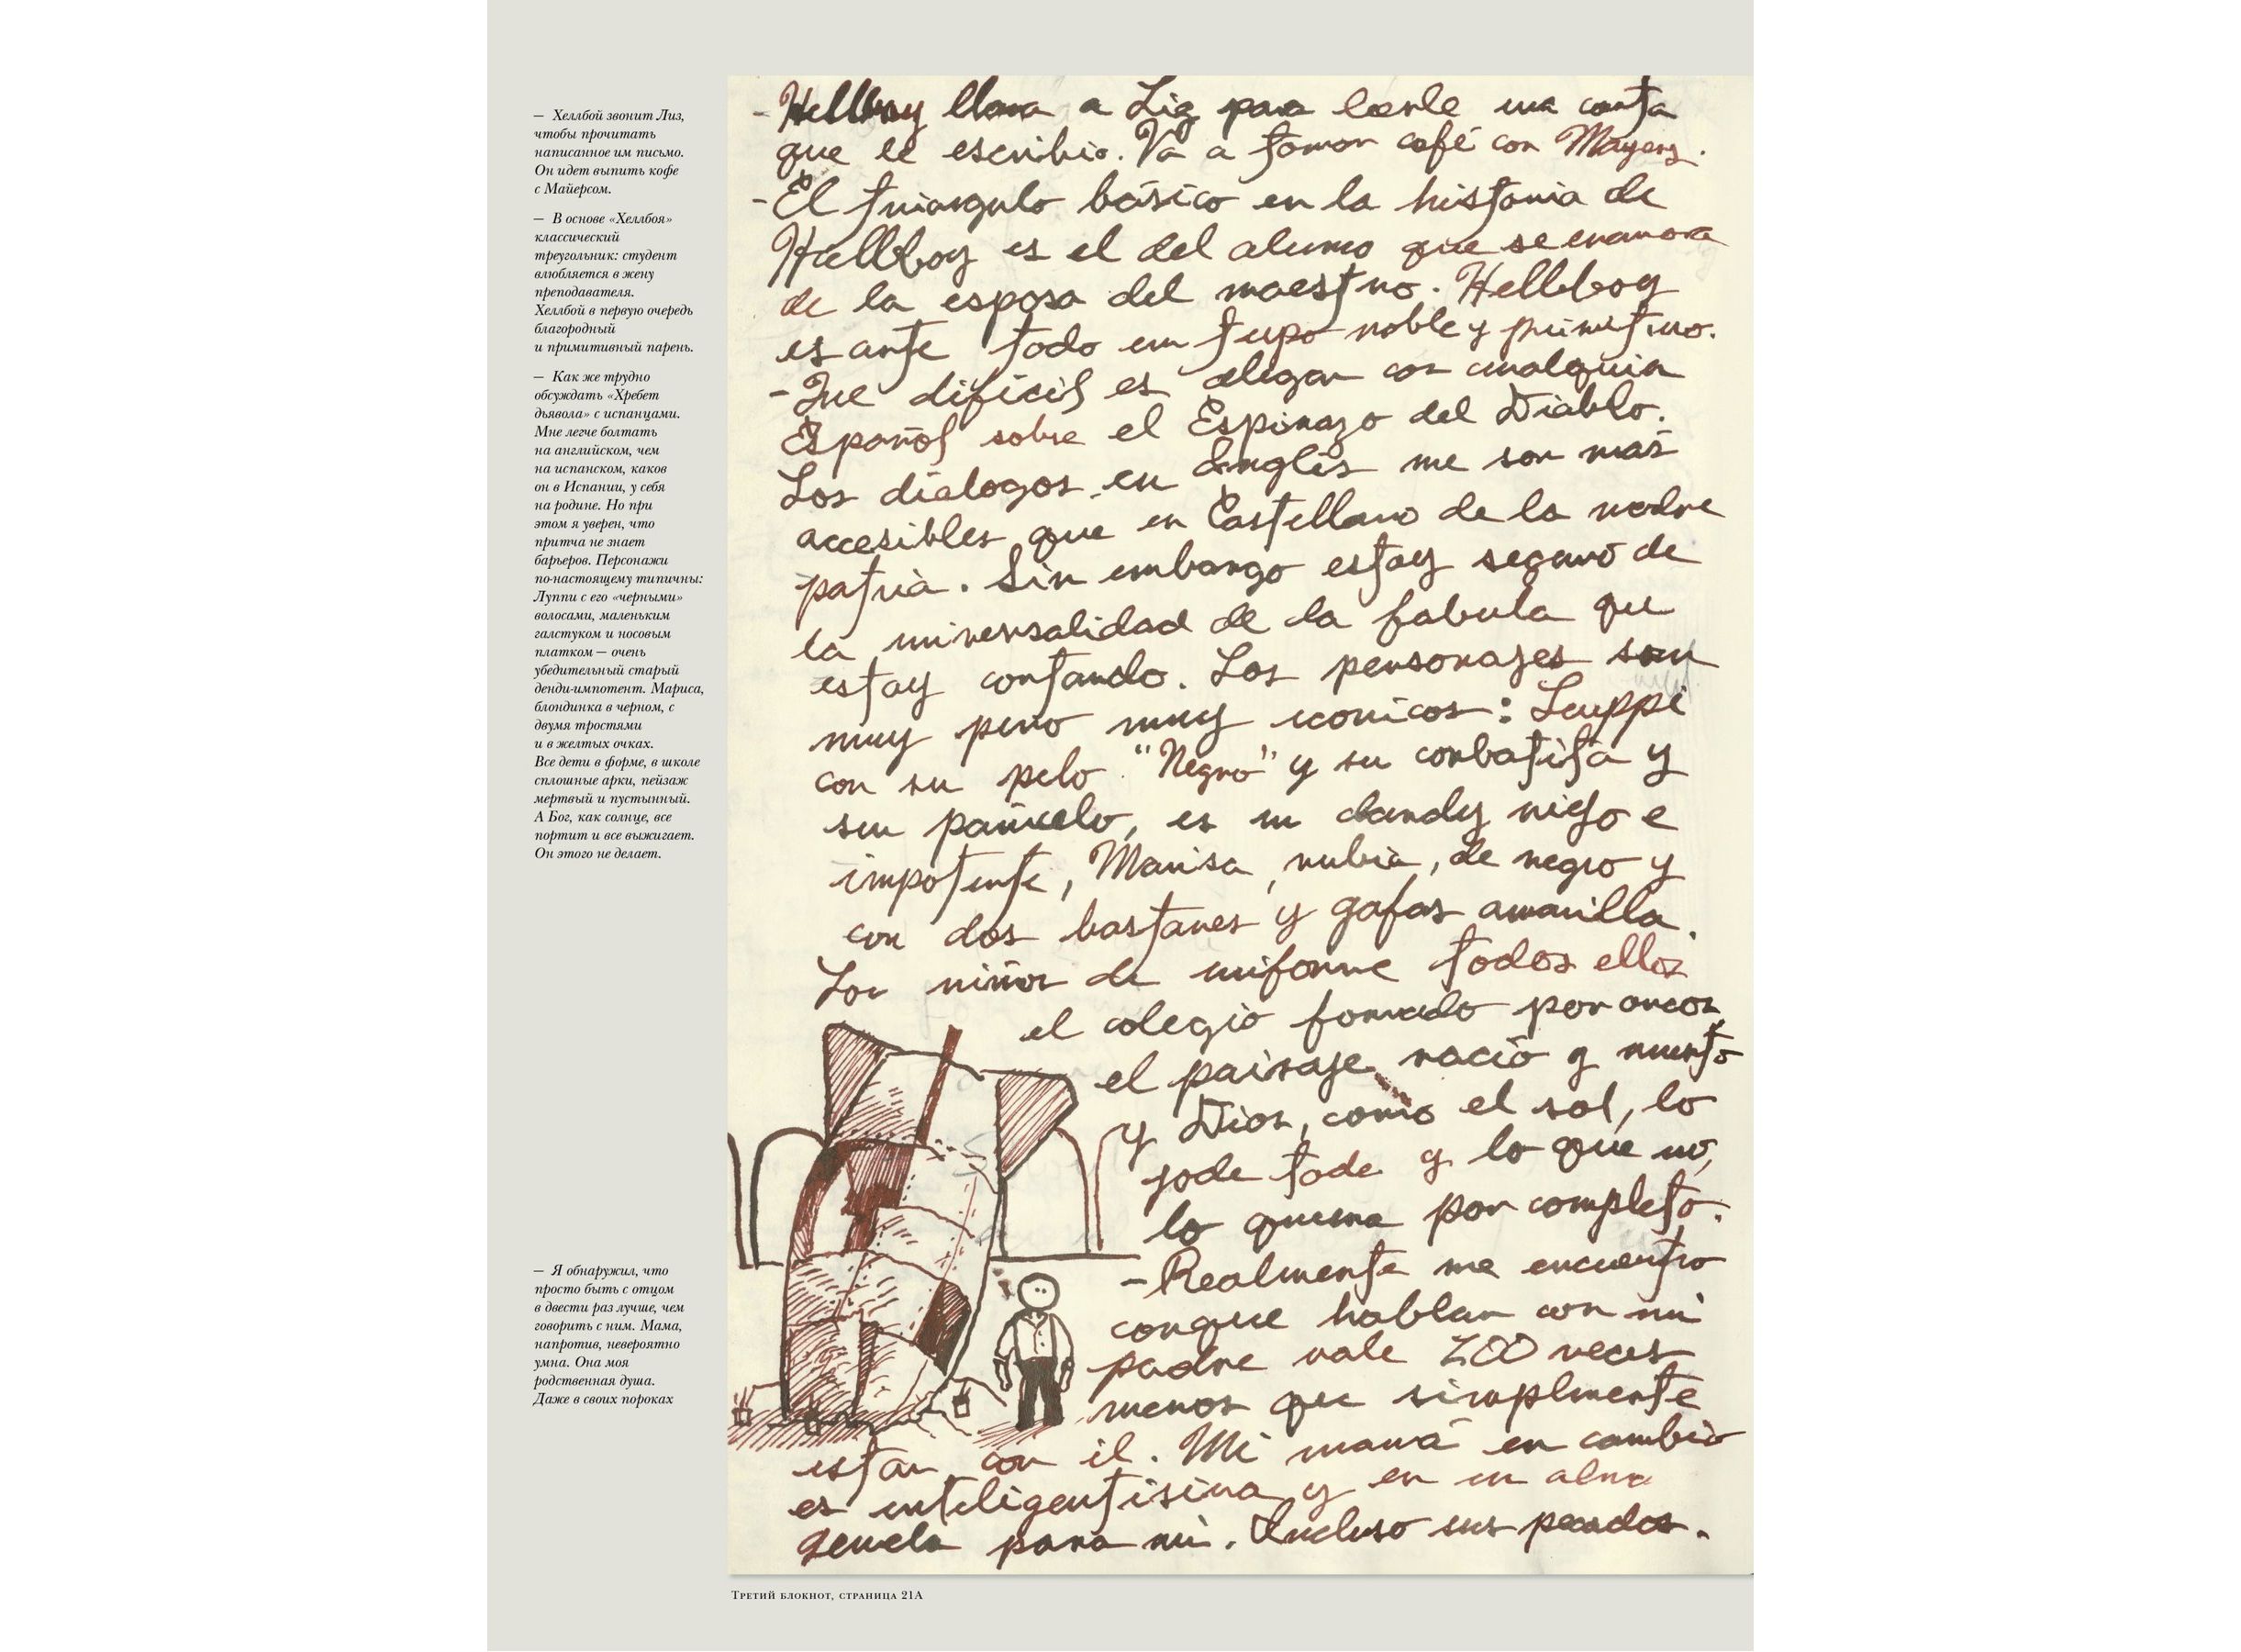 — Хеллбой звонит Лиз,
чтобы прочитать
написанное им письмо.
Он идет выпить кофе
с Майерсом.
— В основе «Хеллбоя»
классический
треугольник: студент
влюбляется в жену
преподавателя.
Хеллбой в первую очередь
благородный
и примитивный парень.
— Как же трудно
обсуждать «Хребет
дьявола» с испанцами.
Мне легче болтать
на английском, чем
на испанском, каков
он в Испании, у себя
на родине. Но при
этом я уверен, что
притча не знает
барьеров. Персонажи
по-настоящему типичны:
Луппи с его «черными»
волосами, маленьким
галстуком и носовым
платком — очень
убедительный старый
денди-импотент. Мариса,
блондинка в черном, с
двумя тростями
и в желтых очках.
Все дети в форме, в школе
сплошные арки, пейзаж
мертвый и пустынный.
А Бог, как солнце, все
портит и все выжигает.
Он этого не делает.
— Я обнаружил, что
просто быть с отцом
в двести раз лучше, чем
говорить с ним. Мама,
напротив, невероятно
умна. Она моя
родственная душа.
Даже в своих пороках
- Hellboy llama a Liz para leerle una carta
que le escribio. Va a tomar café con Mayers.
- El triangulo básico en la historia de
Hellboy es el del alumno que se enamora
de la esposa del maestro. Hellboy
es ante todo un tupo noble y primitivo.
- Que dificil es alegar con cualquier
Español sobre el Espinazo del Diablo.
Los diálogos en Inglés me son más
accesibles que en Castellano de la madre
patria. Sin embargo estoy seguro de
la universalidad de la fabula que
estoy contando. Los personajes son
muy pero muy iconicos: Luppi
con su pelo "Negro" y su corbatita y
su pañuelo, es un dandy viejo e
impotente, Marisa, rubia, de negro y
con dos bastones y gafas amarilla.
Los niños de uniforme todos ellos
el colegio formado por arcos,
el paisaje vacio y muerto
y Dios, como el sol, lo
jode todo y lo que no,
lo quema por completo.
- Realmente me encuentro
conque hablar con mi
padre vale 200 veces
menos que simplmente
estar con él. Mi mamá en cambio
es inteligentisima y en un alma
gemela para mi. Incluso sus pecados.
Третий блокнот, страница 21А